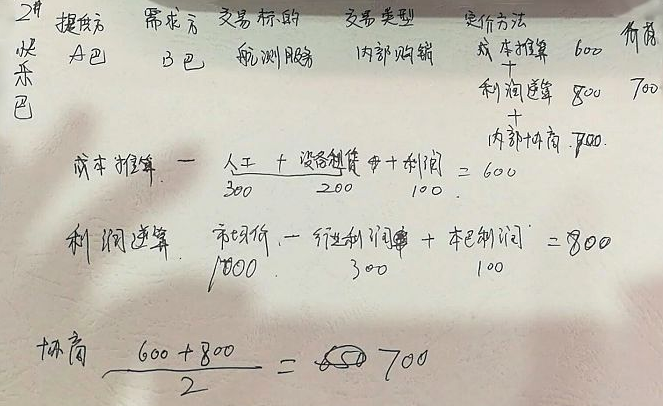 2# 提供方 需求方 交易标的 交易类型 定价方法 价格
快乐巴 A巴 B巴 航测服务 内部购销 成本推算 600
+
利润逆算 800 700
+
内部协商 700.
成本推算 — 人工 + 设备租赁 + 利润 = 600
300 200 100
利润逆算 市场价 - 行业利润 + 本巴利润 = 800
1000 300 100
协商 600+800 / 2 = 700